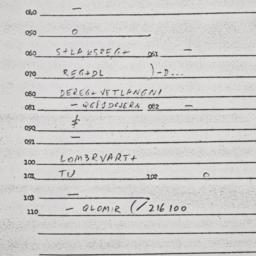 040 —
050 o
060 S+LAUSREG+ 061 —
070 REG+DL )-D...
080 DEREG+VETLANGNI
081 — 082 —
090 ‡
091 —
100 LOM3RVART+
101 TU 102 o
103 —
110 — QLOMIR (/216100